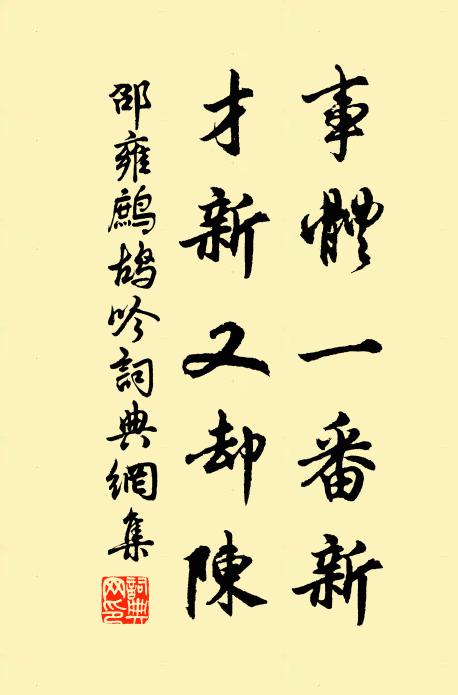 事體一番新
才新又却陳
邵雍鷓鴣吟詞典網集
詞典网印